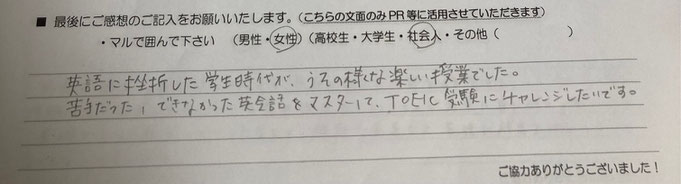 ■ 最後にご感想のご記入をお願いいたします。(こちらの文面のみPR等に活用させていただきます)
・マルで囲んで下さい (男性・女性)(高校生・大学生・社会人・その他( )
英語に挫折した学生時代が、うその様な楽しい授業でした。
苦手だった、できなかった英会話をマスターして、TOEIC受験にチャレンジしたいです。
ご協力ありがとうございました!